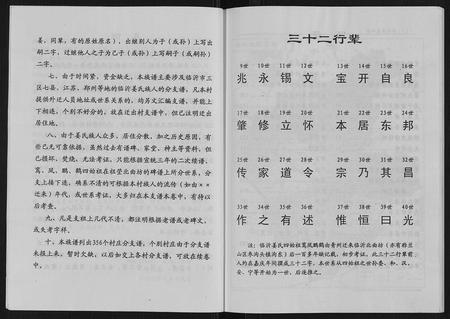 姜，同辈，有的原姓原名），出继别人为子（或孙）上写出
嗣二字，过继他人之子为己子（或孙）上写嗣子（或嗣孙）
二字。
七、由于时间紧，资金缺乏，本族谱主要涉及临沂市三
区七县，江苏、郑州等地的临沂姜氏族人的分支谱，凡本村
提供外迁人员地址或世系关系的，均另文汇编支谱，并能上
下相连，个别不好分的，就在迁出村支谱中，但已注明迁出
居住地。
八、由于姜氏族人众多，居住分散，加之历史原因，有
些已无可靠依据，虽然过去有谱碑、家堂、神主等资料，但
已损坏、焚烧，无法考证，只能根据宣统三年的二次续谱，
鸾、凤、鹏、鹤四始祖在祖茔出北面的碑谱上所分世系，分
支上接下连，确系不清的可根据本村族人的流传（如由××
迁来）年代，或世系考证，大多归在本支谱本卷中，有待以
后考查。
九、凡是支祖上几代不清，都注明根据老谱或老碑文，
或失考字样。
十、本族谱列出356个村庄分支谱，个别村庄由于分支谱
未报上来，暂时欠缺，以后如交上各村分支谱，可放在续卷
中。
三十二行辈
9世 10世 11世 12世 13世 14世 15世 16世
兆 永 锡 文 宝 开 自 良
17世 18世 19世 20世 21世 22世 23世 24世
肇 修 立 怀 本 居 东 邦
25世 26世 27世 28世 29世 30世 31世 32世
传 家 道 令 宗 乃 其 昌
33世 34世 35世 36世 37世 38世 39世 40世
作 之 有 述 惟 恒 曰 光
注：临沂姜氏四始祖鸾凤鹏鹤由青州迁来临沂北面坊（亦有称兰
山区枣沟头镇沟东）后一百多年缺记载，初步考证，此三十二行辈前
人约在嘉庆年间撰成三十二字，本世系从四始祖之世孙委、和、汉、
安、宁等开始为一世，后连推之。